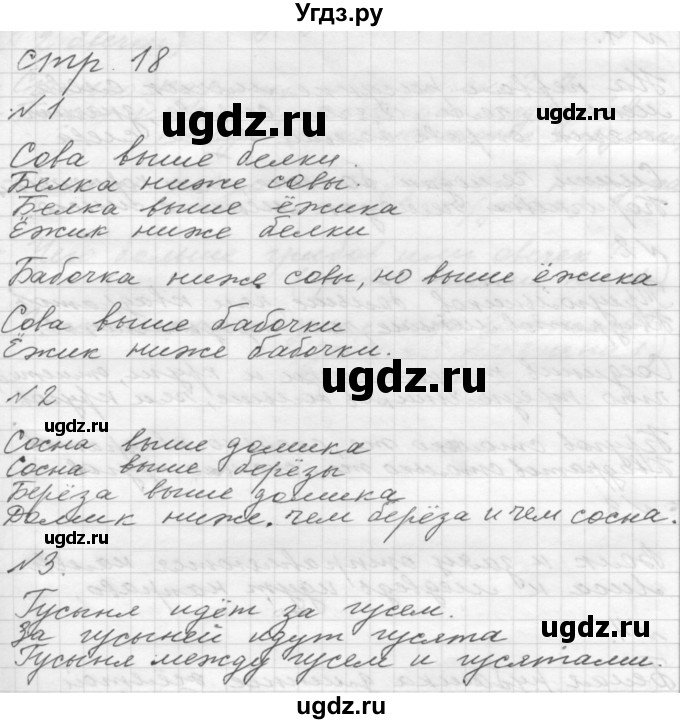 Угдз.ру
стр. 18
№1
Сова выше белки.
Белка ниже совы.
Белка выше ёжика
Ёжик ниже белки
Бабочка ниже совы, но выше ёжика
Сова выше бабочки
Ёжик ниже бабочки.
№2
Сосна выше домика
Сосна выше берёзы
Берёза выше домика
Домик ниже. чем берёза и чем сосна.
№3.
Гусыня идёт за гусем.
За гусыней идут гусята
Гусыня между гусем и гусятами.
ugdz.ru
ugdz.ru
ugdz.ru
ugdz.ru
ugdz.ru
ugdz.ru
ugdz.ru
ugdz.ru